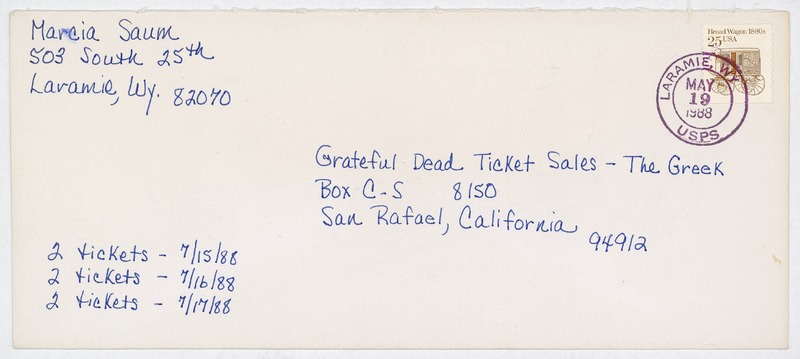 Marcia Saum
503 South 25th
Laramie, Wy. 82070
Bread Wagon 1880s
25 USA
LARAMIE, WY
MAY
19
1988
USPS
Grateful Dead Ticket Sales - The Greek
Box C-S 8150
San Rafael, California
94912
2 tickets - 7/15/88
2 tickets - 7/16/88
2 tickets - 7/17/88